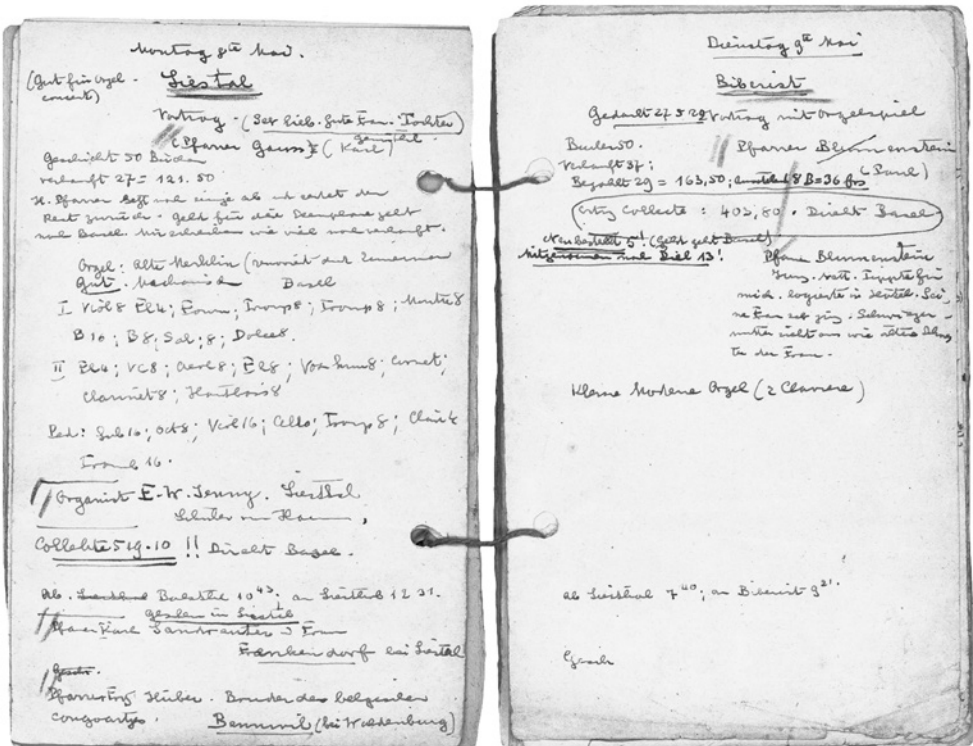 Montag 8te Mai.
(Gut für Orgel-
concert)
Liestal
Vortrag - (Sehr lieb. gute Frau. Tochter)
gemütlich.
(Pfarrer Gauss) (Karl)
Geschickt 50 Bücher
verkauft 27 = 121.50
H. Pfarrer setzt noch einige ab und sendet den
Rest zurück. Geld für die Exemplare geht
nach Basel. Mir schreiben wie viel noch verkauft.
Orgel: alte Merklin (renoviert durch Zimmermann
Gut. Mechanisch Basel
I Viol8 Fl4; Fourn; Tromp8; Montre8
B16; B8; Sal; 8; Dolce8
II Fl4; VC8; Aeol8; Fl8; Vox hum8; Cornet;
Clarinet8; Hautbois8
Ped: Sub16; Oct8; Viol16; Cello; Tromp8; Clair4
16.
Organist E. W. Jenny. Liesthal
Schüler von
Collekte 519.10 !! Direkt Basel.
Ab. Balsthal 10 43. an Liesthal 12 31.
gesehen in Liestal
Pfarrer Karl Sandreuter & Frau
Frenkendorf bei Liestal
Pfarrer Huber. Bruder des belgischen
Bennwil (bei Waldenburg)
Dienstag 9te Mai
Biberist
Gedackt 27 5 29 Vortrag mit Orgelspiel
Bucher 50. Pfarrer Blumenstein
Verkauft 37; (Paul)
Bezahlt 29 = 163,50; 8 B = 36 frs
Collecte: 403,80. Direkt Basel
Neubestellt 5! (Geld geht Basel)
Mitgenommen nach Biel 13!
Pfarrer Blumenstein
Jung. nett. Tippte für
mich. logierte in Hotel. Sei-
ne Frau sehr jung. Schwieger-
mutter sieht aus wie ältere Schwes-
ter der Frau.
Kleine Moderne Orgel (2 Claviere)
ab Liesthal 7 40; an Biberist 9 21.